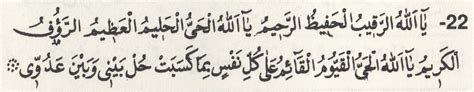 22- يَآ اَللهُ الرَّقِيبُ الْحَفِيظُ الرَّحِيمُ يَآ اَللهُ الْحَىُّ الْحَلِيمُ الْعَظِيمُ الرَّؤُفُ
الْكَرِيمُ يَآ اَللهُ الْحَىُّ الْقَيُّومُ الْقَآئِمُ عَلٰى كُلِّ نَفْسٍ بِمَا كَسَبَتْ حُلْ بَيْنِى وَبَيْنَ عَدُوِّى